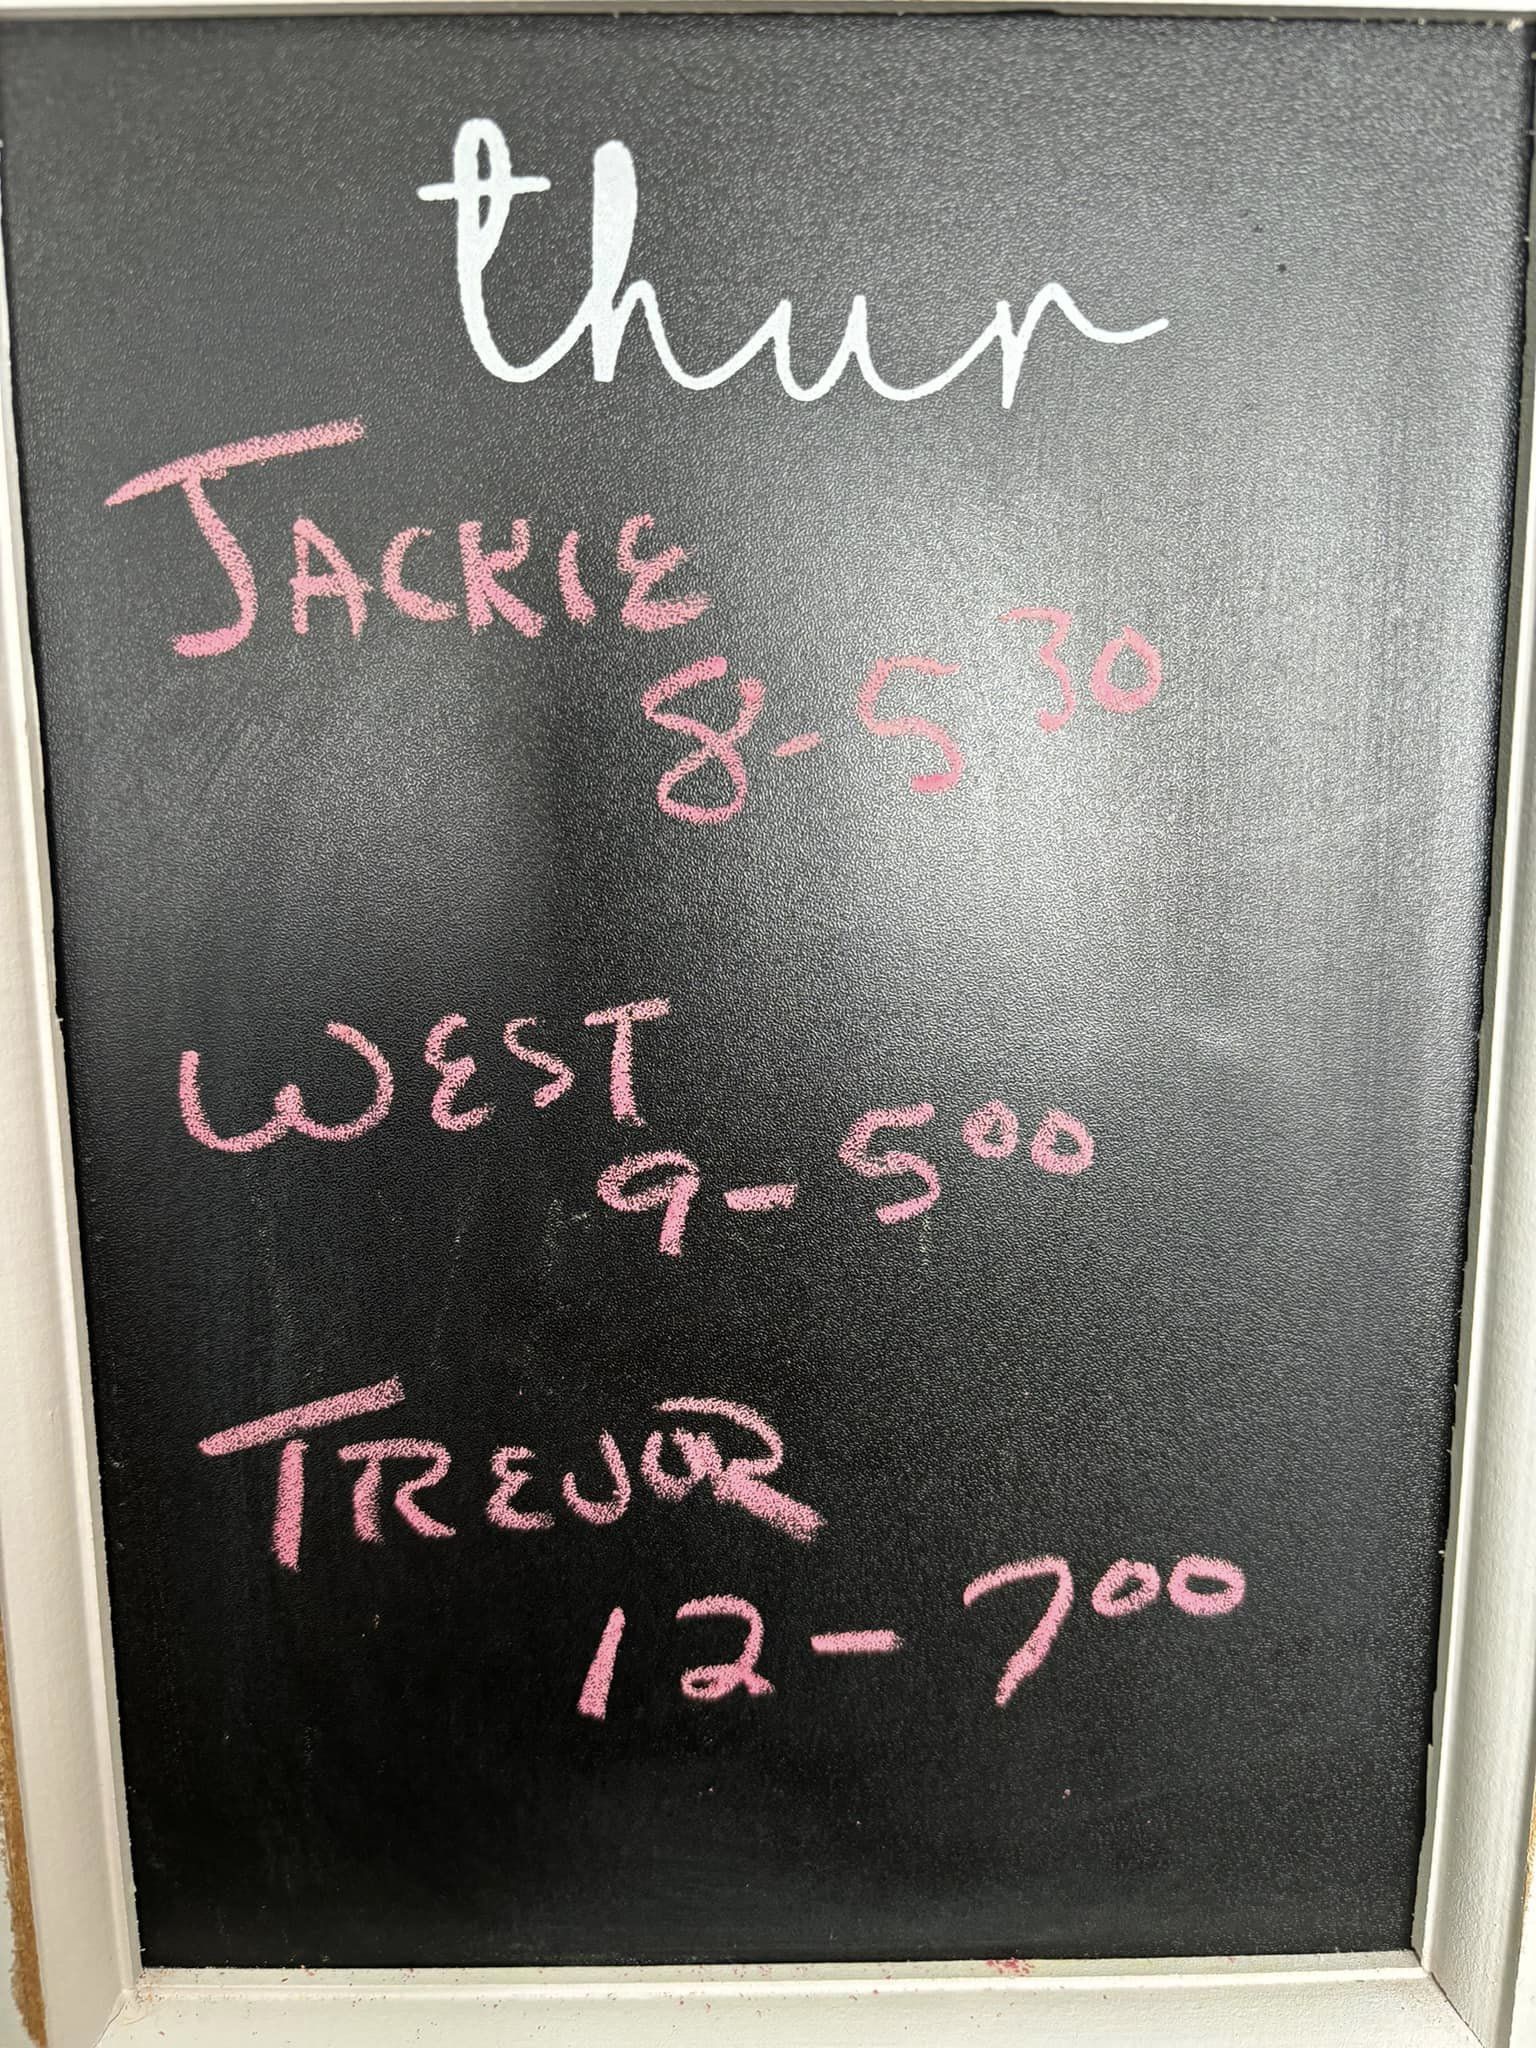 thur
JACKIE
8-5 30
WEST
9-5 00
TREVOR
12-7 00